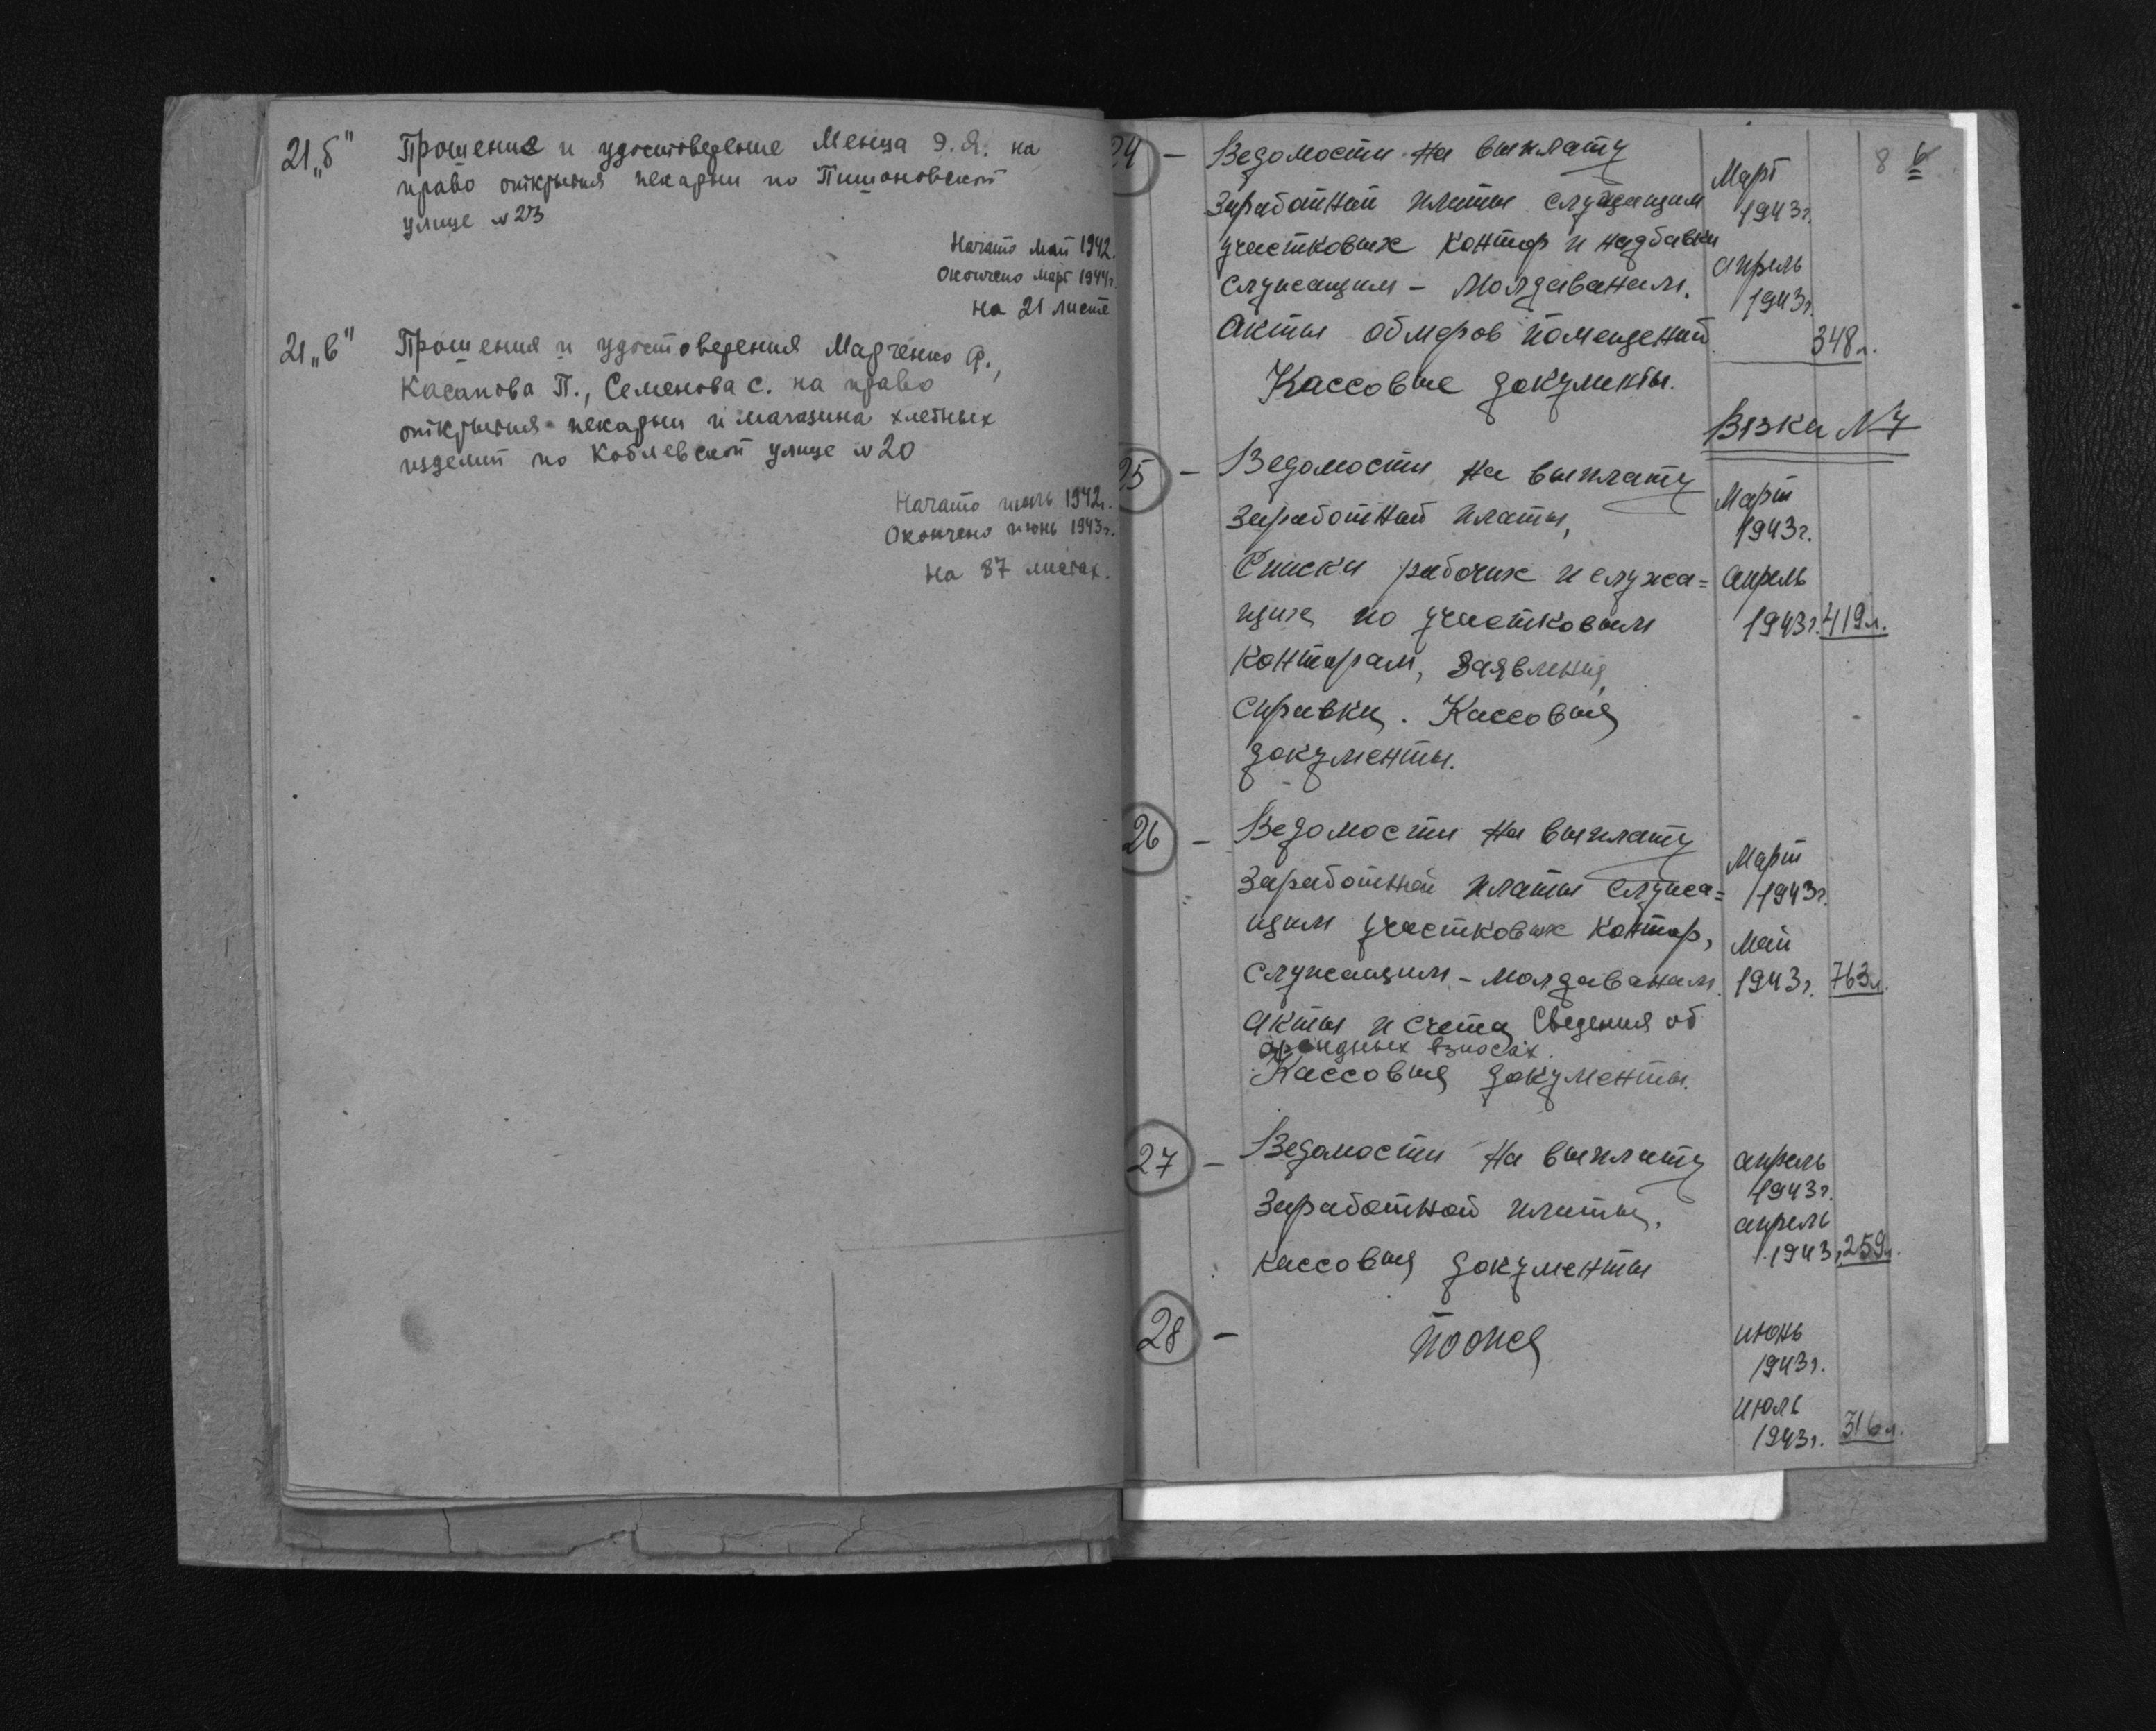 21 „б"
Прошение и удостоверение Менца Э.Я. на
право открытия пекарни по Пишоновской
улице №23
Начато май 1942.
Окончено март 1944г.
на 21 листе
21 „в"
Прошения и удостоверения Марченко Ф.,
Касапова П., Семенова С. на право
открытия пекарни и магазина хлебных
изделий по Коблевской улице №20
Начато июль 1942г.
Окончено июнь 1943г.
на 87 листах.
8 6
24 – Ведомости на выплату
заработной платы служащим
участковых контор и надбавки
служащим – Молдаванам.
Акты обмеров помещений
Кассовые докумекты.
Март
1943г.
апрель
1943г.
348л.
Вязка №7
25 – Ведомости на выплату
заработной платы,
Списки рабочих и служа=
щих по участковым
конторам, Заявления,
справки. Кассовыя
документы.
Март
1943г.
апрель
1943г. 419л.
26 – Ведомости на выплату
заработной платы служа=
щим участковых контор,
служащим – молдаванам.
акты и счета, Сведения об
арендных взносах.
Кассовыя документы.
Март
1943г.
май
1943г. 763л.
27 – Ведомости на выплату
заработной платы,
кассовыя документы
апрель
1943г.
апрель
1943г. 259л.
28 – Тоже
июнь
1943г.
июль
1943г. 316л.